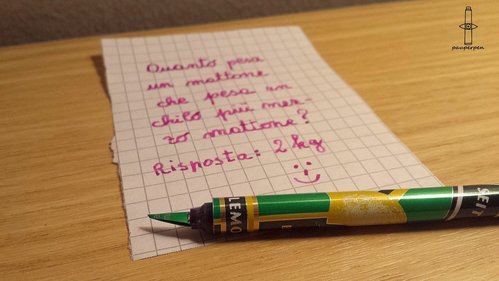 Quanto pesa
un mattone
che pesa un
chilo più mez-
zo mattone?
Risposta: 2 kg
LEMO
SEN
pauperpen